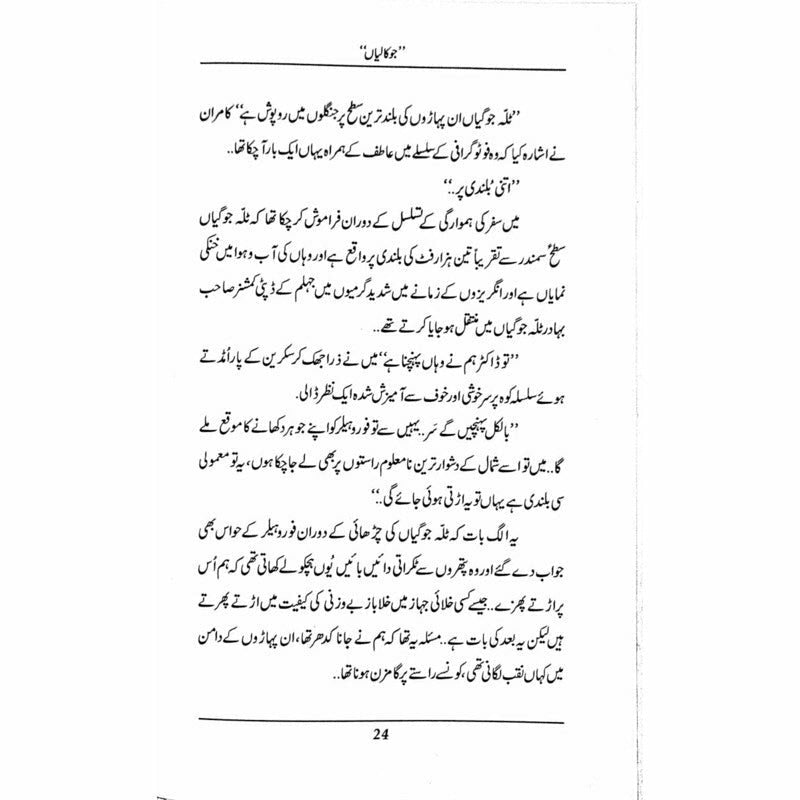 ”جوکالیاں“
”ٹلّہ جوگیاں ان پہاڑوں کی بلند ترین سطح پر جنگلوں میں روپوش ہے“ کامران
نے اشارہ کیا کہ وہ فوٹوگرافی کے سلسلے میں عاطف کے ہمراہ یہاں ایک بار آ چکا تھا..
”اتنی بُلندی پر..“
میں سفر کی ہمواری کے تسلسل کے دوران فراموش کر چکا تھا کہ ٹلّہ جوگیاں
سطح سمندر سے تقریباً تین ہزار فٹ کی بلندی پر واقع ہے اور وہاں کی آب و ہوا میں خنکی
نمایاں ہے اور انگریزوں کے زمانے میں شدید گرمیوں میں جہلم کے ڈپٹی کمشنر صاحب
بہادر ٹلّہ جوگیاں میں منتقل ہو جایا کرتے تھے..
”تو ڈاکٹر ہم نے وہاں پہنچنا ہے“ میں نے ذرا جھک کر سکرین کے پار اُمڈتے
ہوئے سلسلہ کوہ پر سرخوشی اور خوف سے آمیزش شدہ ایک نظر ڈالی.
”بالکل پہنچیں گے سَر.. یہیں سے تو فور وہیلر کو اپنے جوہر دکھانے کا موقع ملے
گا.. میں تو اسے شمال کے دشوار ترین نامعلوم راستوں پر بھی لے جا چکا ہوں، یہ تو معمولی
سی بلندی ہے یہاں تو یہ اڑتی ہوئی جائے گی..“
یہ الگ بات کہ ٹلّہ جوگیاں کی چڑھائی کے دوران فور وہیلر کے حواس بھی
جواب دے گئے اور وہ پتھروں سے ٹکراتی دائیں بائیں یُوں ہچکولے کھاتی تھی کہ ہم اُس
پر اڑتے پھرے.. جیسے کسی خلائی جہاز میں خلا باز بے وزنی کی کیفیت میں اڑتے پھرتے
ہیں لیکن یہ بعد کی بات ہے.. مسئلہ یہ تھا کہ ہم نے جانا کدھر تھا، ان پہاڑوں کے دامن
میں کہاں نقب لگانی تھی، کونسے راستے پر گامزن ہونا تھا..
24